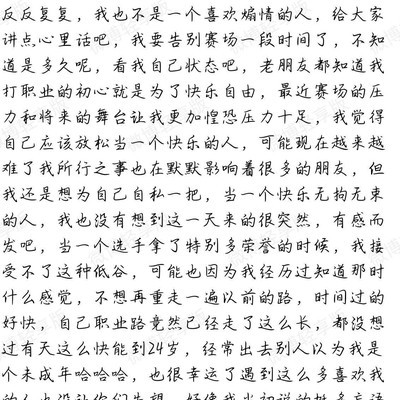 反反复复，我也不是一个喜欢煽情的人，给大家
讲点心里话吧，我要告别赛场一段时间了，不知
道是多久呢，看我自己状态吧，老朋友都知道我
打职业的初心就是为了快乐自由，最近赛场的压
力和将来的舞台让我更加惶恐压力十足，我觉得
自己应该放松当一个快乐的人，可能现在越来越
难了我所行之事也在默默影响着很多的朋友，但
我还是想为自己自私一把，当一个快乐无拘无束
的人，我也没有想到这一天来的很突然，有感而
发吧，当一个选手拿了特别多荣誉的时候，我接
受不了这种低谷，可能也因为我经历过知道那时
什么感觉，不想再重走一遍以前的路，时间过的
好快，自己职业路竟然已经走了这么长，都没想
过有天这么快能到24岁，经常出去别人以为我是
个未成年哈哈哈，也很幸运了遇到这么多喜欢我